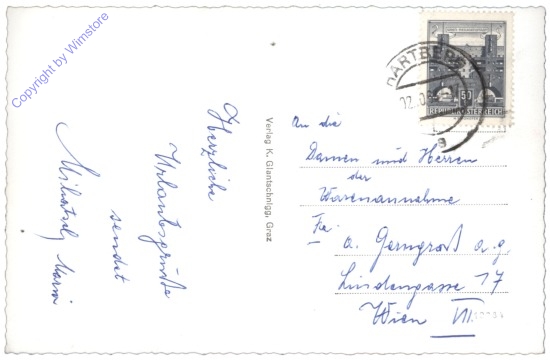 Copyright by Wimstore
Herzliche
Urlaubsgrüße
sendet
Maria
Verlag K. Glantschnigg, Graz
HARTBERG
50
REPUBLIK ÖSTERREICH
An die
Damen und Herren
der
Warenannahme
Fa.
A. Gerngroß A.G.
Lindengasse 17
Wien VII.